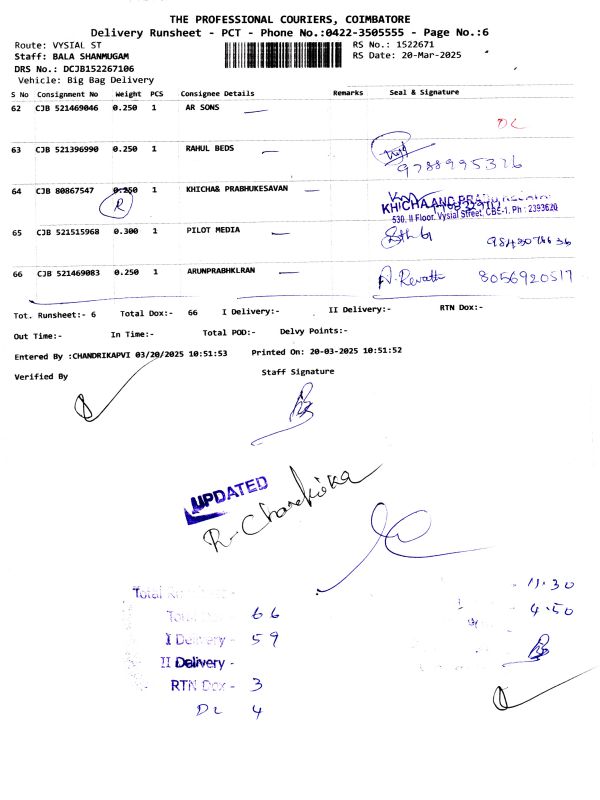 THE PROFESSIONAL COURIERS, COIMBATORE
Delivery Runsheet - PCT - Phone No.:0422-3505555 - Page No.:6
Route: VYSIAL ST RS No.: 1522671
Staff: BALA SHANMUGAM RS Date: 20-Mar-2025
DRS No.: DCJB152267106
Vehicle: Big Bag Delivery
S No Consignment No Weight PCS Consignee Details Remarks Seal & Signature
62 CJB 521469046 0.250 1 AR SONS DL
63 CJB 521396990 0.250 1 RAHUL BEDS 9788995326
64 CJB 80867547 0.250 1 KHICHA& PRABHUKESAVAN
R KHICHA AND
530, II Floor, Vysial Street, CBE-1, Ph : 2393620
65 CJB 521515968 0.300 1 PILOT MEDIA
66 CJB 521469083 0.250 1 ARUNPRABHKLRAN A. Revathi 8056920517
Tot. Runsheet:- 6 Total Dox:- 66 I Delivery:- II Delivery:- RTN Dox:-
Out Time:- In Time:- Total POD:- Delvy Points:-
Entered By :CHANDRIKAPVI 03/20/2025 10:51:53 Printed On: 20-03-2025 10:51:52
Verified By Staff Signature
UPDATED
R. Chandrika
Total 11.30
Total 66 4.50
I Delivery - 59
II Delivery -
RTN Dox - 3
DL 4